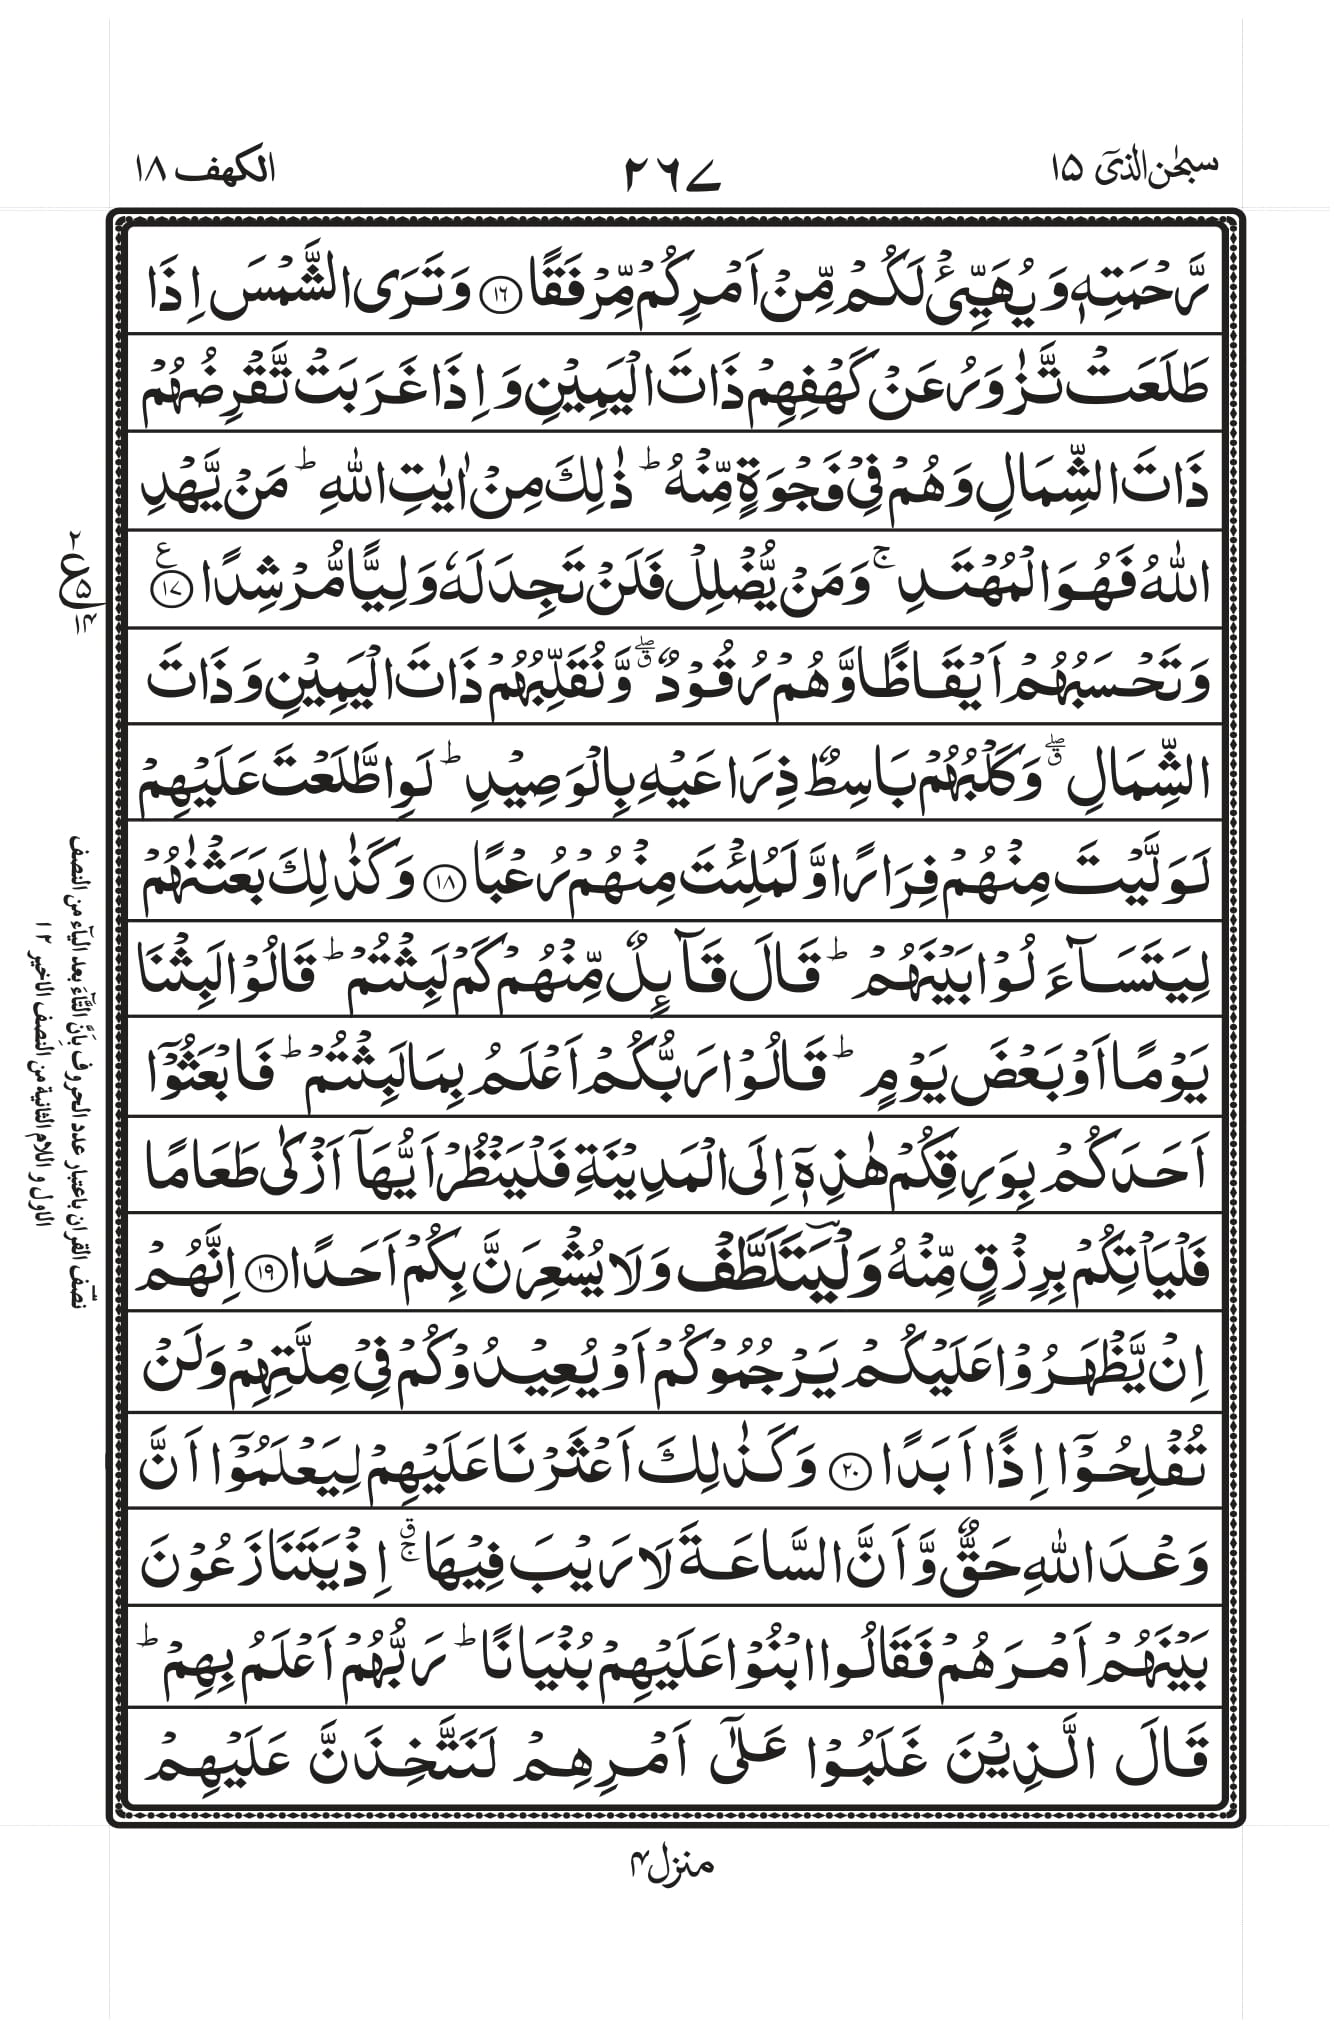 سبحٰن الذیٓ ١٥
٢٦٧
الكهف ١٨
رَّحْمَتِهٖ وَيُهَيِّئْ لَكُمْ مِّنْ اَمْرِكُمْ مِّرْفَقًا ١٦ وَتَرَى الشَّمْسَ اِذَا
طَلَعَتْ تَّزٰوَرُ عَنْ كَهْفِهِمْ ذَاتَ الْيَمِيْنِ وَ اِذَا غَرَبَتْ تَّقْرِضُهُمْ
ذَاتَ الشِّمَالِ وَهُمْ فِيْ فَجْوَةٍ مِّنْهُ ؕ ذٰلِكَ مِنْ اٰيٰتِ اللّٰهِ ؕ مَنْ يَّهْدِ
اللّٰهُ فَهُوَ الْمُهْتَدِ ۚ وَمَنْ يُّضْلِلْ فَلَنْ تَجِدَ لَهٗ وَلِيًّا مُّرْشِدًا ١٧ ع
وَتَحْسَبُهُمْ اَيْقَاظًا وَّهُمْ رُقُوْدٌ ۖق وَّنُقَلِّبُهُمْ ذَاتَ الْيَمِيْنِ وَذَاتَ
الشِّمَالِ ۖق وَكَلْبُهُمْ بَاسِطٌ ذِرَاعَيْهِ بِالْوَصِيْدِ ؕ لَوِ اطَّلَعْتَ عَلَيْهِمْ
لَوَلَّيْتَ مِنْهُمْ فِرَارًا وَّلَمُلِئْتَ مِنْهُمْ رُعْبًا ١٨ وَكَذٰلِكَ بَعَثْنٰهُمْ
لِيَتَسَآءَلُوْا بَيْنَهُمْ ؕ قَالَ قَآئِلٌ مِّنْهُمْ كَمْ لَبِثْتُمْ ؕ قَالُوْا لَبِثْنَا
يَوْمًا اَوْ بَعْضَ يَوْمٍ ؕ قَالُوْا رَبُّكُمْ اَعْلَمُ بِمَا لَبِثْتُمْ ؕ فَابْعَثُوْٓا
اَحَدَكُمْ بِوَرِقِكُمْ هٰذِهٖٓ اِلَى الْمَدِيْنَةِ فَلْيَنْظُرْ اَيُّهَآ اَزْكٰى طَعَامًا
فَلْيَاْتِكُمْ بِرِزْقٍ مِّنْهُ وَلْيَتَلَطَّفْ وَلَا يُشْعِرَنَّ بِكُمْ اَحَدًا ١٩ اِنَّهُمْ
اِنْ يَّظْهَرُوْا عَلَيْكُمْ يَرْجُمُوْكُمْ اَوْ يُعِيْدُوْكُمْ فِيْ مِلَّتِهِمْ وَلَنْ
تُفْلِحُوْٓا اِذًا اَبَدًا ٢٠ وَكَذٰلِكَ اَعْثَرْنَا عَلَيْهِمْ لِيَعْلَمُوْٓا اَنَّ
وَعْدَ اللّٰهِ حَقٌّ وَّاَنَّ السَّاعَةَ لَا رَيْبَ فِيْهَا ۚق اِذْ يَتَنَازَعُوْنَ
بَيْنَهُمْ اَمْرَهُمْ فَقَالُوا ابْنُوْا عَلَيْهِمْ بُنْيَانًا ؕ رَبُّهُمْ اَعْلَمُ بِهِمْ ؕ
قَالَ الَّذِيْنَ غَلَبُوْا عَلٰٓى اَمْرِهِمْ لَنَتَّخِذَنَّ عَلَيْهِمْ
٢
ع
٥
١٤
نصف القران باعتبار عدد الحروف بأنّ التّآء بعد الیآء من النصف
الاول و اللام الثانية من النصف الاخير ١٢
منزل ٤